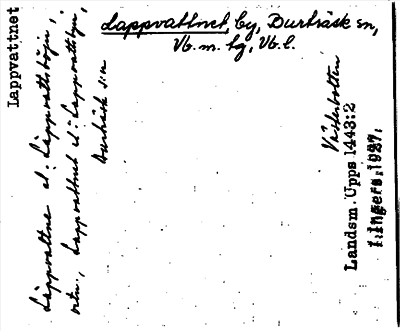 Lappvattnet
Lappvattnet, by, Burträsk sn,
Vb. m. hg, Vb. l.
Läppvattne el: Läppvattsböjn,;
ortn., Lappvattnet el: Lappvattsbyn,
Burträsk s:n
Västerbotten
Landsm. Upps 1443:2
1927.